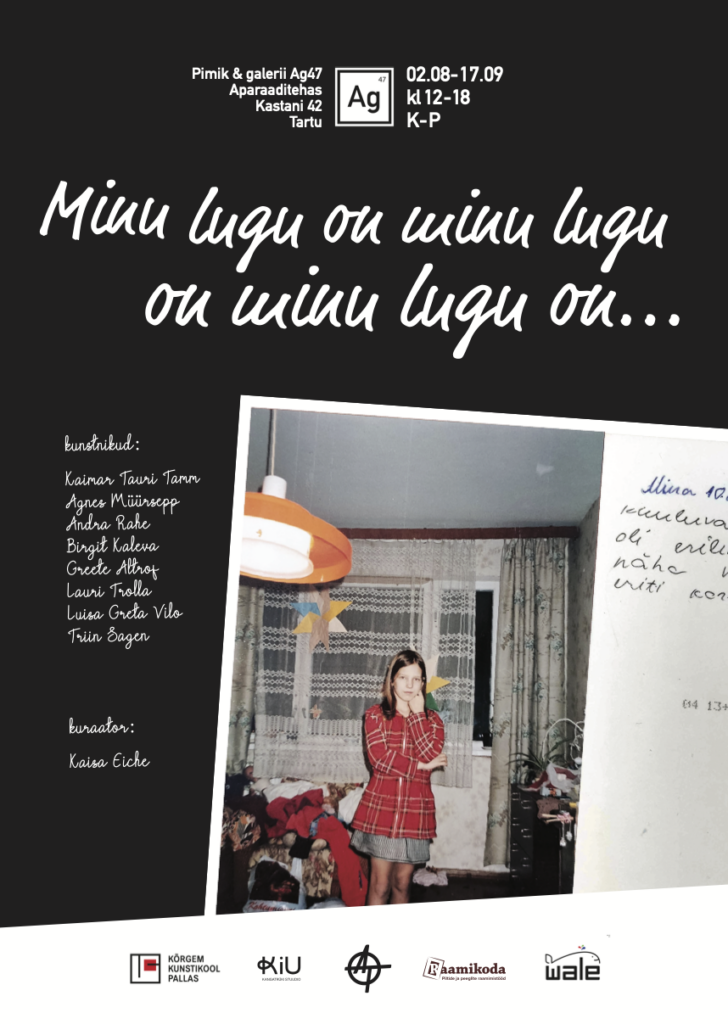 Pimik & galerii Ag47
Aparaaditehas
Kastani 42
Tartu
47
Ag
02.08-17.09
kl 12-18
K-P
Minu lugu on minu lugu
on minu lugu on...
kunstnikud:
Kaimar Tauri Tamm
Agnes Müürsepp
Andra Rahe
Birgit Kaleva
Greete Altrof
Lauri Trolla
Luisa Greta Vilo
Triin Sagen
kuraator:
Kaisa Eiche
Mina
kuuluva
oli
näha
eriti
KÕRGEM
KUNSTIKOOL
PALLAS
KiU
Raamikoda
Piltide ja peeglite raamimistööd
wale